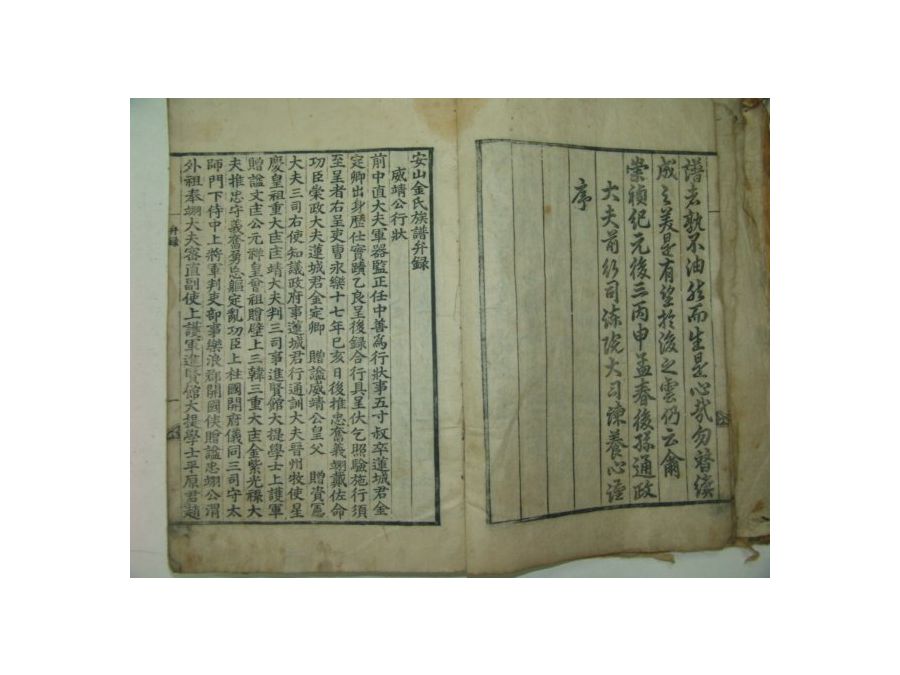 譜者孰不油然而生是心哉勿替續
成之美是有望於後之雲仍云爾
崇禎紀元後三丙申孟春後孫通政
大夫前行司諫院大司諫養心謹
序
安山金氏族譜弁録
威靖公行狀
前中直大夫軍器監正任中善爲行狀事五寸叔卒蓮城君金
定卿出身歷仕實蹟乙良呈後録合行具呈伏乞照驗施行須
至呈者右呈吏曹永樂十七年己亥日後推忠奮義翊戴佐命
功臣崇政大夫蓮城君金定卿 贈謚威靖公皇父 贈資憲
大夫三司右使知議政府事蓮城君行通訓大夫晉州牧使星
慶皇祖重大匡匡靖大夫判三司事進賢館大提學士上護軍
贈謚文匡公元祥皇曾祖贈壁上三韓三重大匡金紫光祿大
夫推忠守義奮勇忘軀定亂功臣上柱國開府儀同三司守太
師門下侍中上將軍判吏部事樂浪郡開國侯贈謚忠翊公渭
外祖奉翊大夫密直副使上護軍進賢館大提學士平原君趙
弁録